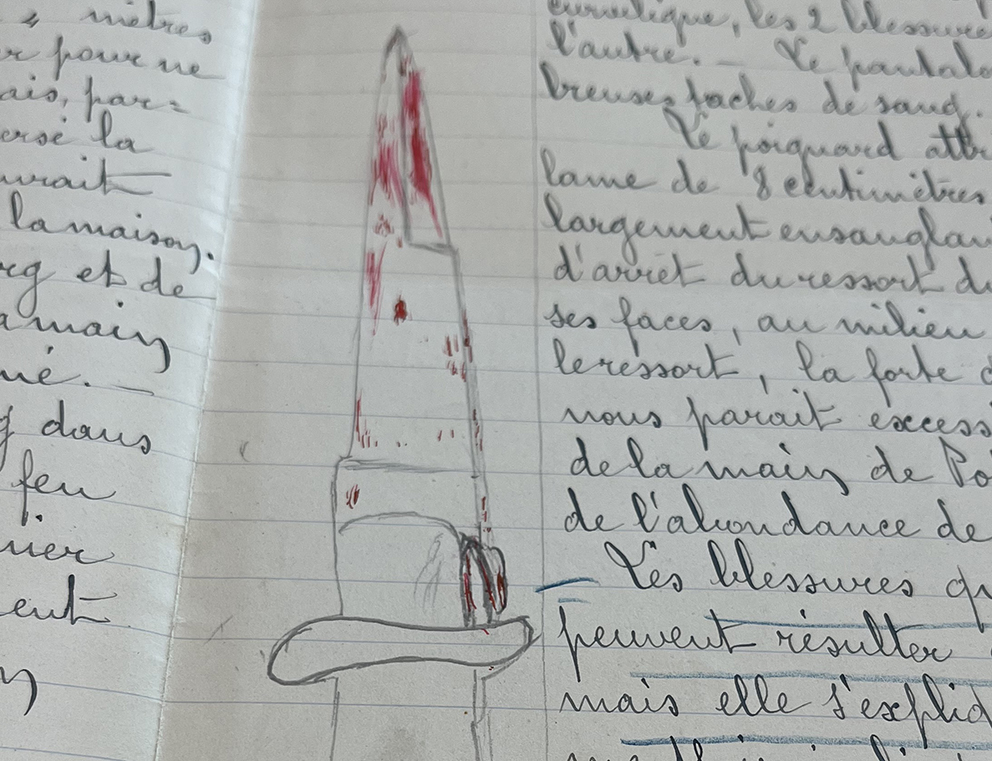 4 mètres
r pour ne
ais, par=
ersé la
urait
la maison.
rg et de
a main
ué. —
g dans
feu
nier
ent
les 2 blessure
l'autre. — Le pantalo
breuses taches de sang.
Le poignard attri
lame de 8 centimètres
largement ensanglan
d'arrêt du ressort du
ses faces, au milieu
le ressort, la forte
nous paraît excess
de la main de Po
de l'abondance de
Les blessures qu
peuvent résulter
mais elle s'expliq